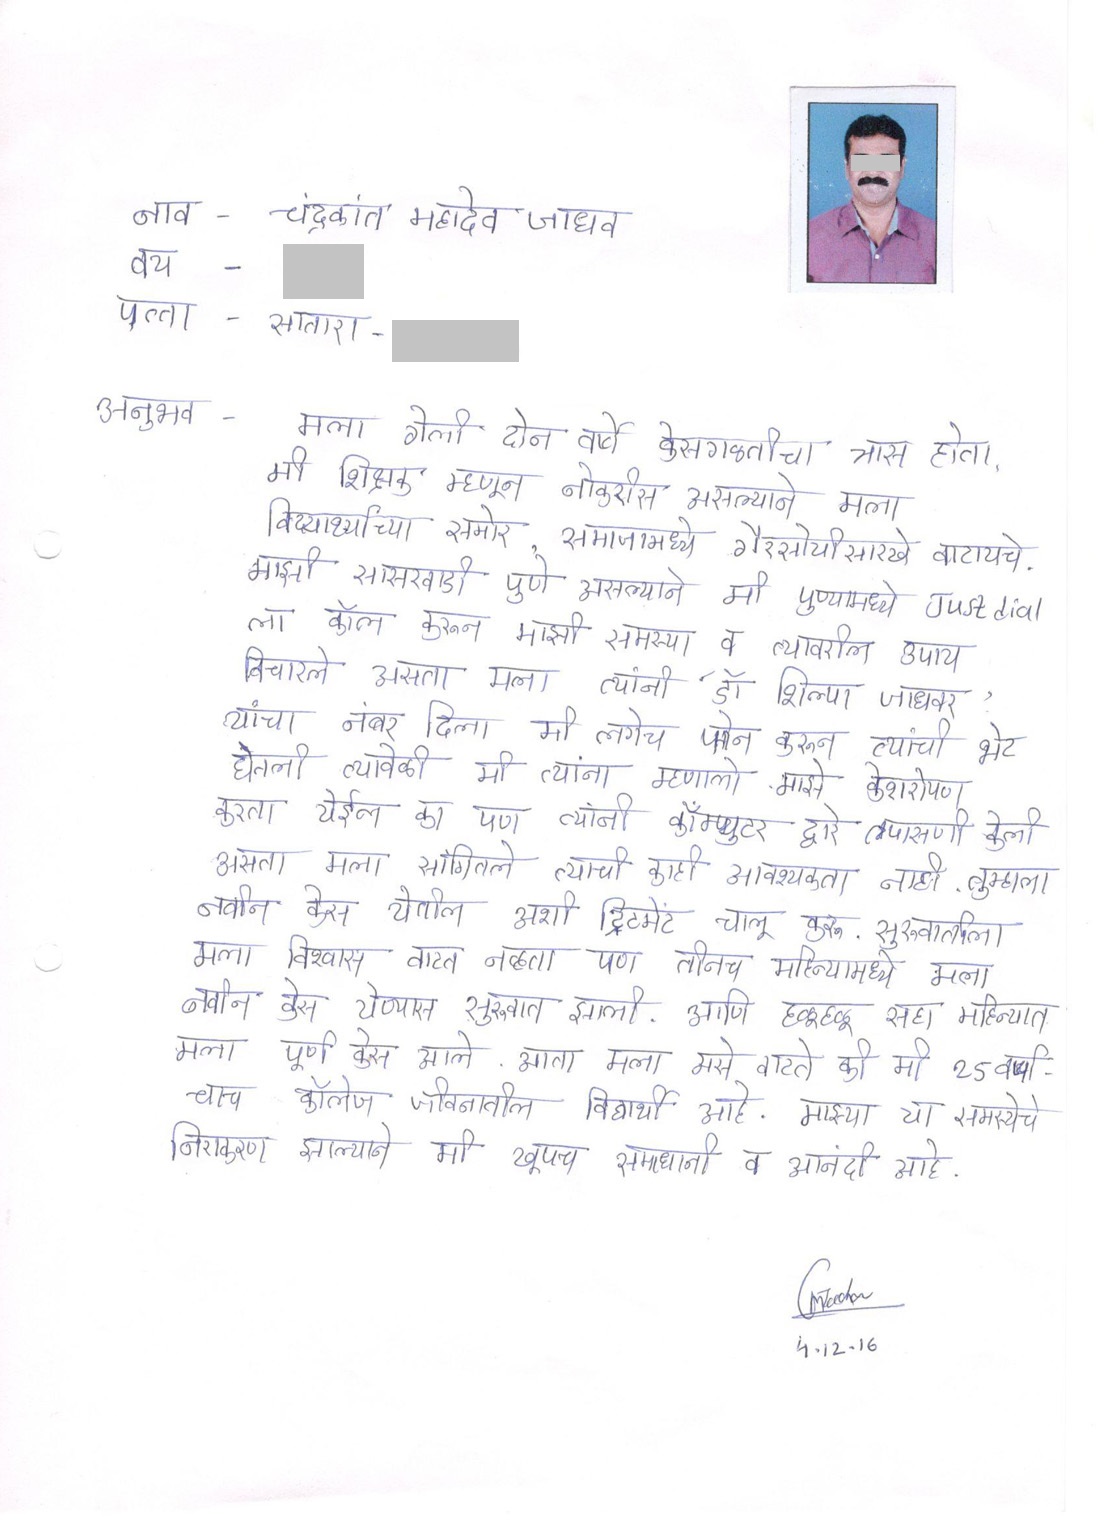 नाव - चंद्रकांत महादेव जाधव
वय -
पत्ता - सातारा -
अनुभव - मला गेली दोन वर्षे केसगळतीचा त्रास होता.
मी शिक्षक म्हणून नोकरीस असल्याने मला
विद्यार्थ्यांच्या समोर, समाजामध्ये गैरसोयीसारखे वाटायचे.
माझी सासरवाडी पुणे असल्याने मी पुण्यामध्ये Just dial
ला कॉल करून माझी समस्या व त्यावरील उपाय
विचारले असता मला त्यांनी 'डॉ शिल्पा जाधवर'
यांचा नंबर दिला मी लगेच फोन करून त्यांची भेट
घेतली त्यावेळी मी त्यांना म्हणालो माझे केशरोपण
करता येईल का पण त्यांनी कॉम्प्युटर द्वारे तपासणी केली
असता मला सांगितले त्याची काही आवश्यकता नाही. तुम्हाला
नवीन केस येतील अशी ट्रिटमेंट चालू करू. सुरुवातीला
मला विश्वास वाटत नव्हता पण तीनच महिन्यामध्ये मला
नवीन केस येण्यास सुरुवात झाली. आणि हळूहळू सहा महिन्यात
मला पूर्ण केस आले. आता मला मसे वाटते की मी 25 वर्षा-
चाच कॉलेज जीवनातील विद्यार्थी आहे. माझ्या या समस्येचे
निराकरण झाल्याने मी खूपच समाधानी व आनंदी आहे.
4.12.16